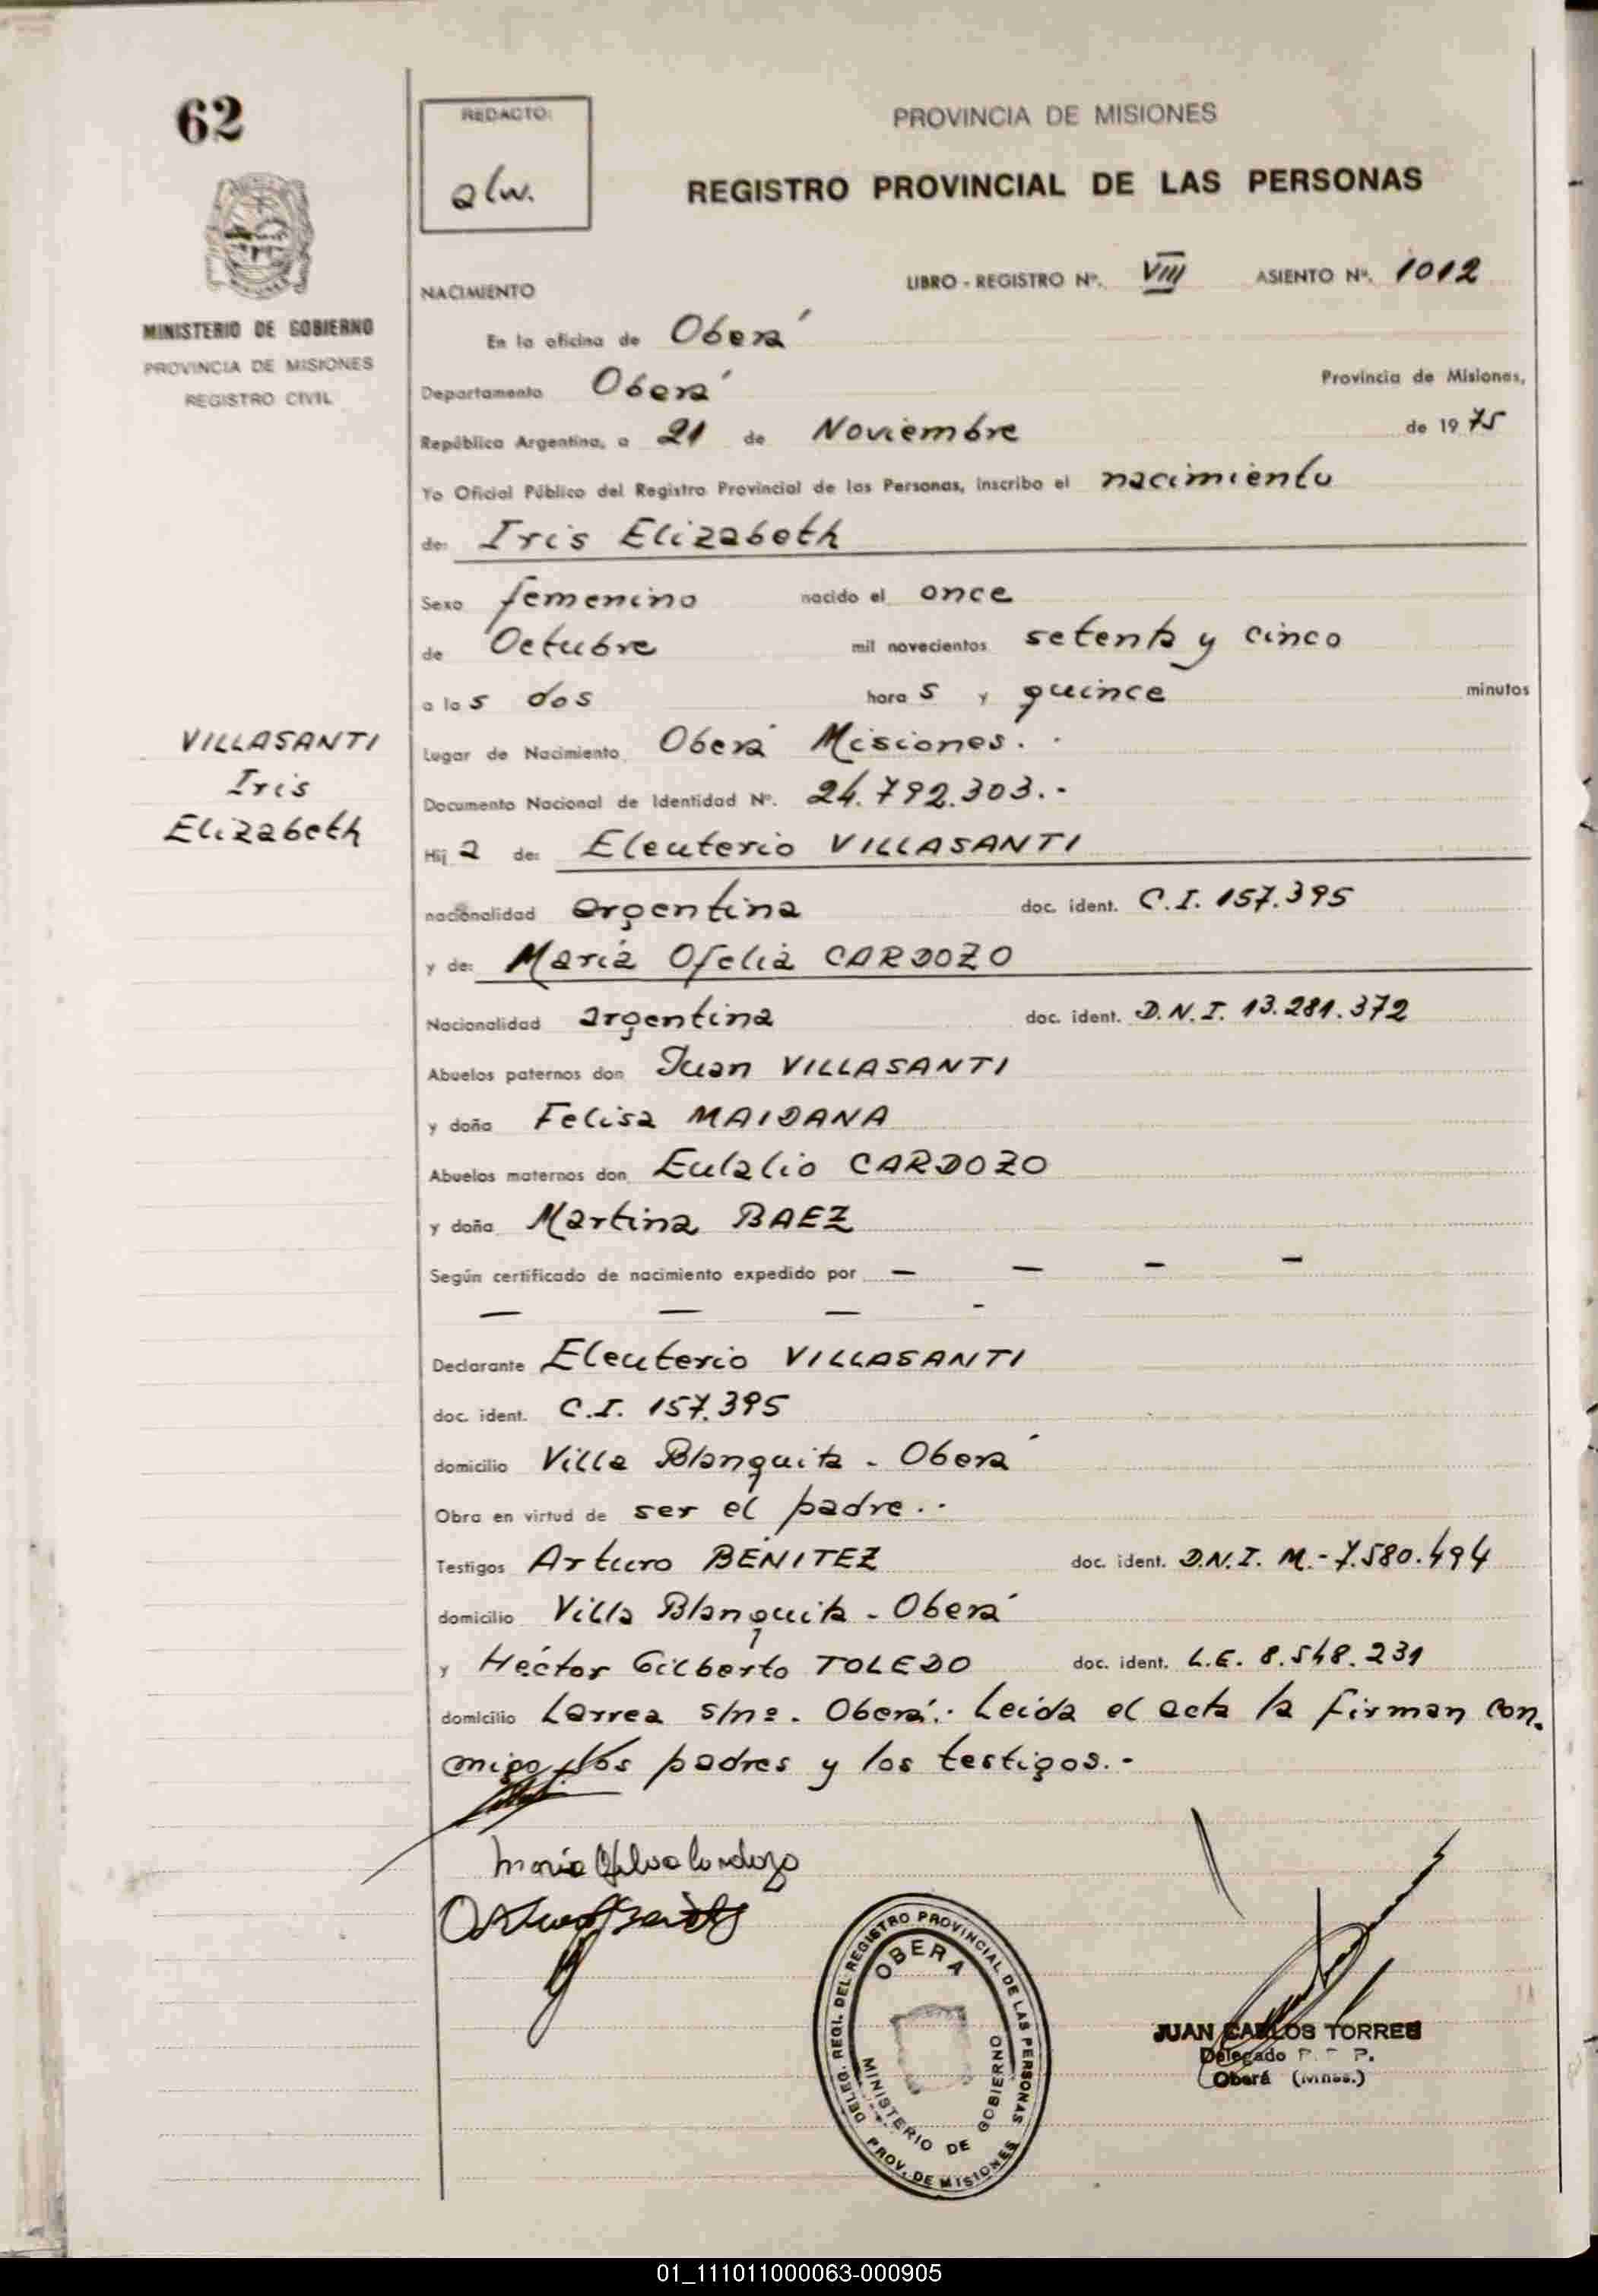 62
REDACTO:
alw.
PROVINCIA DE MISIONES
REGISTRO PROVINCIAL DE LAS PERSONAS
MINISTERIO DE GOBIERNO
PROVINCIA DE MISIONES
REGISTRO CIVIL
NACIMIENTO LIBRO - REGISTRO Nº. VIII ASIENTO Nº. 1012
En la oficina de Oberá
Departamento Oberá Provincia de Misiones,
República Argentina, a 21 de Noviembre de 1975
Yo Oficial Público del Registro Provincial de las Personas, inscribo el nacimiento
de: Iris Elizabeth
Sexo femenino nacido el once
de Octubre mil novecientos setenta y cinco
a las dos horas y quince minutos
VILLASANTI
Iris
Elizabeth
Lugar de Nacimiento Oberá Misiones. -
Documento Nacional de Identidad Nº. 24.792.303.-
Hija de: Eleuterio VILLASANTI
nacionalidad argentina doc. ident. C.I. 157.395
y de: María Ofelia CARDOZO
Nacionalidad argentina doc. ident. D.N.I. 13.281.372
Abuelos paternos don Juan VILLASANTI
y doña Felisa MAIDANA
Abuelos maternos don Eulalio CARDOZO
y doña Martina BAEZ
Según certificado de nacimiento expedido por — — — —
— — — -
Declarante Eleuterio VILLASANTI
doc. ident. C.I. 157.395
domicilio Villa Blanquita - Oberá
Obra en virtud de ser el padre. -
Testigos Arturo BENITEZ doc. ident. D.N.I. M.- 7.580.494
domicilio Villa Blanquita - Oberá
y Héctor Gilberto TOLEDO doc. ident. L.E. 8.548.231
domicilio Larrea s/nº. Oberá.- Leida el acta la firman con.
migo, los padres y los testigos. -
Maria Ofelia Cardozo
Arturo Benitez
DELEG. REGI. DEL REGISTRO PROVINCIAL DE LAS PERSONAS
OBERA
MINISTERIO DE GOBIERNO
PROV. DE MISIONES
JUAN CARLOS TORRES
Delegado P.
Oberá (Mnes.)
01_111011000063-000905